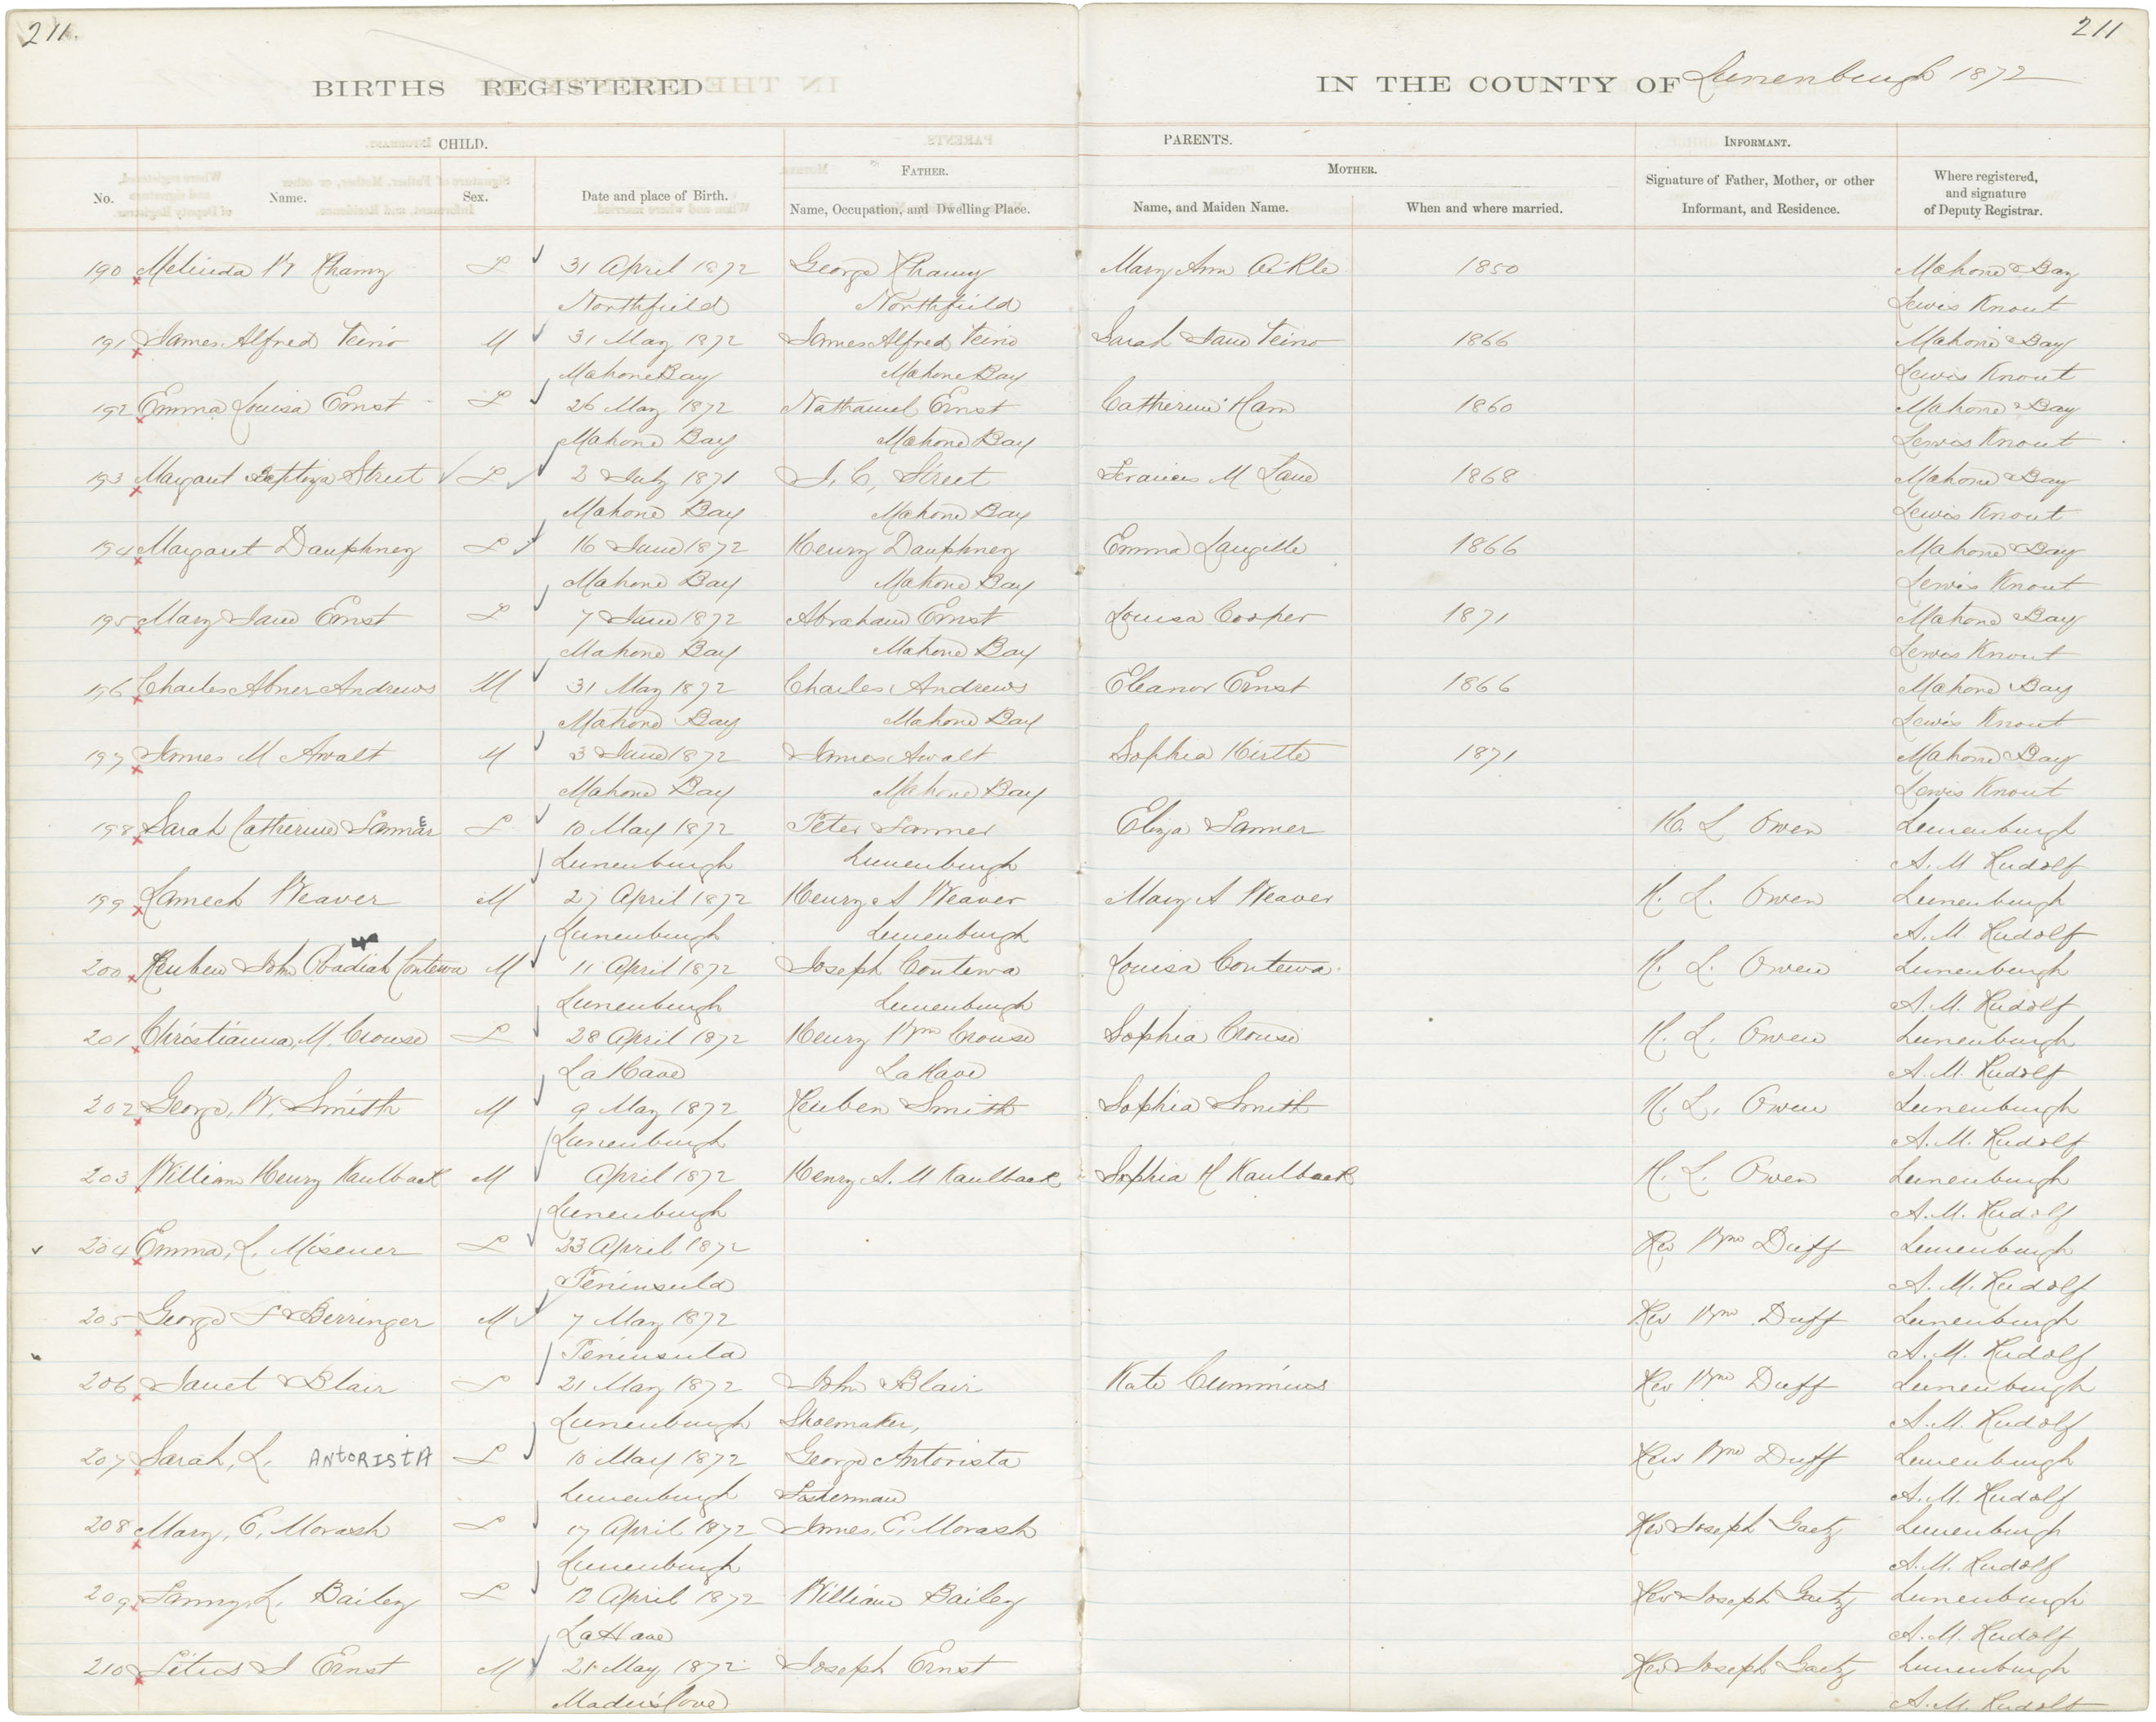 211.
211
BIRTHS REGISTERED IN THE COUNTY OF Lunenburgh 1872
CHILD. PARENTS. INFORMANT.
FATHER. MOTHER.
No. Name. Sex. Date and place of Birth. Name, Occupation, and Dwelling Place. Name, and Maiden Name. When and where married. Signature of Father, Mother, or other Informant, and Residence. Where registered, and signature of Deputy Registrar.
190 Melinda W F 31 April 1872 George Mary Ann 1850 Mahone Bay
Northfield Northfield Lewis Knout
191 James Alfred Teino M 31 May 1872 James Alfred Teino Sarah Jane Teino 1866 Mahone Bay
Mahone Bay Mahone Bay Lewis Knout
192 Emma Louisa Ernst F 26 May 1872 Nathaniel Ernst Catherine Ham 1860 Mahone Bay
Mahone Bay Mahone Bay Lewis Knout
193 Margaret Street F 2 July 1871 J. C, Street Frances M Lane 1868 Mahone Bay
Mahone Bay Mahone Bay Lewis Knout
194 Margaret Dauphney F 16 June 1872 Henry Dauphney Emma Langille 1866 Mahone Bay
Mahone Bay Mahone Bay Lewis Knout
195 Mary Jane Ernst F 7 June 1872 Abraham Ernst Louisa Cooper 1871 Mahone Bay
Mahone Bay Mahone Bay Lewis Knout
196 Charles Abner Andrews M 31 May 1872 Charles Andrews Eleanor Ernst 1866 Mahone Bay
Mahone Bay Mahone Bay Lewis Knout
197 James M Awalt M 3 June 1872 James Awalt Sophia Hirtle 1871 Mahone Bay
Mahone Bay Mahone Bay Lewis Knout
198 Sarah Catherine F 10 May 1872 Peter Eliza H. L Owen Lunenburgh
Lunenburgh Lunenburgh A. M Rudolf
199 Lamech Weaver M 27 April 1872 Henry A Weaver Mary A Weaver H. L. Owen Lunenburgh
Lunenburgh Lunenburgh A. M. Rudolf
200 Reuben John Obadiah Contewa M 11 April 1872 Joseph Contewa Louisa Contewa H. L. Owen Lunenburgh
Lunenburgh Lunenburgh A. M. Rudolf
201 Christianna, M. Crouse F 28 April 1872 Henry Wm Crouse Sophia Crouse H. L. Owen Lunenburgh
LaHave LaHave A. M. Rudolf
202 George, W. Smith M 9 May 1872 Reuben Smith Sophia Smith H. L. Owen Lunenburgh
Lunenburgh A. M. Rudolf
203 William Henry Kaulback M April 1872 Henry A. M Kaulback Sophia H Kaulback H. L. Owen Lunenburgh
Lunenburgh A. M. Rudolf
204 Emma, L. Misener F 23 April 1872 Rev Wm Duff Lunenburgh
Peninsula A. M. Rudolf
205 George F Berringer M 7 May 1872 Rev Wm Duff Lunenburgh
Peninsula A. M. Rudolf
206 Janet Blair F 21 May 1872 John Blair Kate Cummins Rev Wm Duff Lunenburgh
Lunenburgh Shoemaker, A. M. Rudolf
207 Sarah, L. ANtORIStA F 10 May 1872 George Antorista Rev Wm Duff Lunenburgh
Lunenburgh Fisherman A. M. Rudolf
208 Mary, E, Morash F 17 April 1872 James, E, Morash Rev Joseph Gaetz Lunenburgh
Lunenburgh A. M. Rudolf
209 Fanny, L. Bailey F 12 April 1872 William Bailey Rev Joseph Gaetz Lunenburgh
LaHave A. M. Rudolf
210 Titus J Ernst M 21 May 1872 Joseph Ernst Rev Joseph Gaetz Lunenburgh
Maders Cove A. M. Rudolf